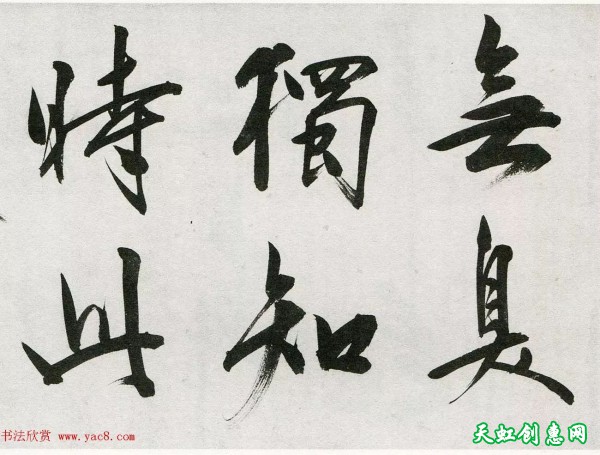 無臭
獨知
時此
书法欣赏 www.yac8.com
天虹创惠网